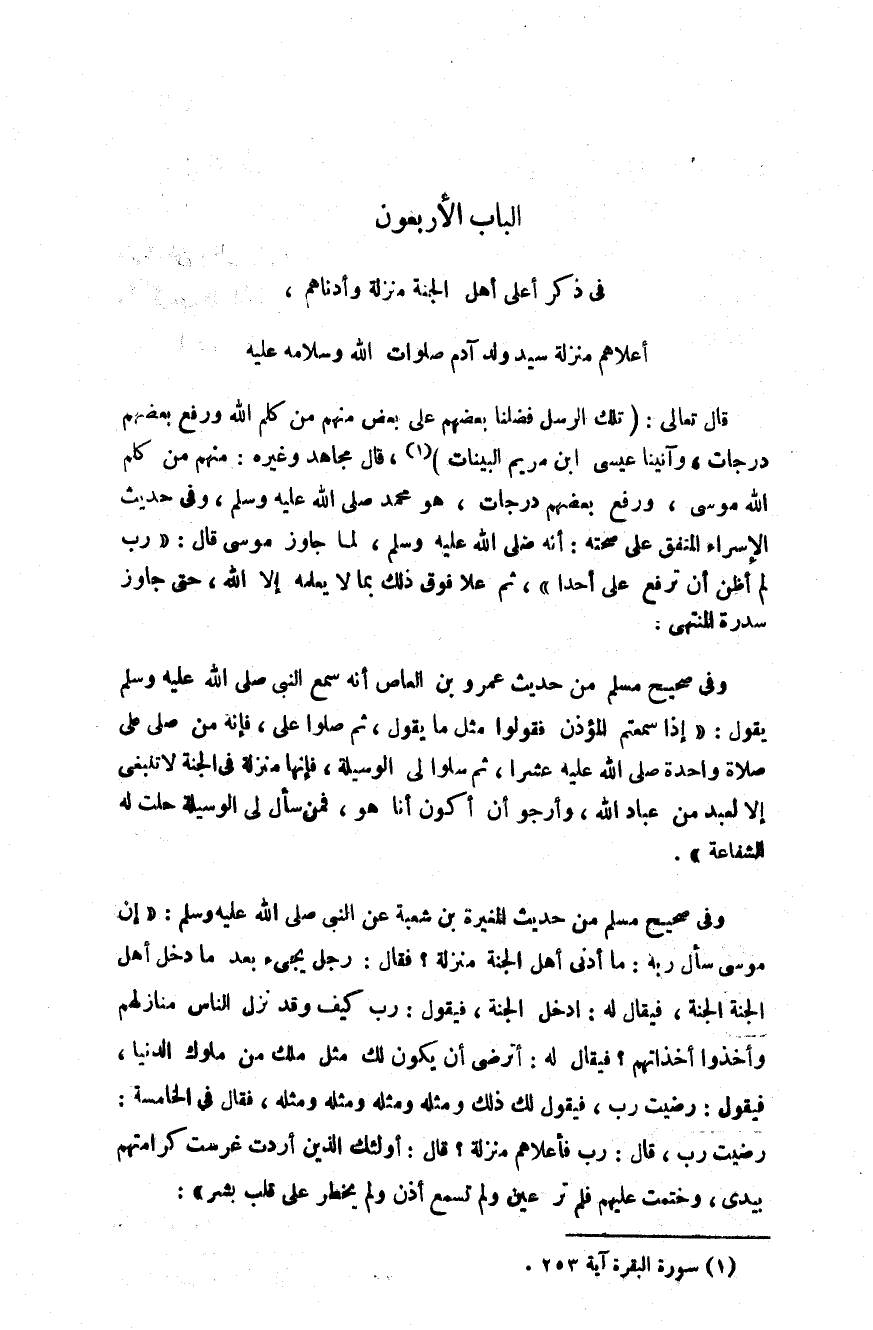 الباب الأربعون
فى ذكر أعلى أهل الجنة منزلة وأدناهم ،
أعلاهم منزلة سيد ولد آدم صلوات الله وسلامه عليه
قال تعالى : ( تلك الرسل فضلنا بعضهم على بعض منهم من كلم الله ورفع بعضهم
درجات ، وآتينا عيسى ابن مريم البينات )(١) ، قال مجاهد وغيره : منهم من كلم
الله موسى ، ورفع بعضهم درجات ، هو محمد صلى الله عليه وسلم ، وفى حديث
الإسراء المتفق على صحته : أنه صلى الله عليه وسلم ، لما جاوز موسى قال : « رب
لم أظن أن ترفع على أحدا » ، ثم علا فوق ذلك بما لا يعلمه إلا الله ، حتى جاوز
سدرة المنتهى :
وفى صحيح مسلم من حديث عمرو بن العاص أنه سمع النبى صلى الله عليه وسلم
يقول : « إذا سمعتم المؤذن فقولوا مثل ما يقول ، ثم صلوا على ، فإنه من صلى على
صلاة واحدة صلى الله عليه عشرا ، ثم سلوا لى الوسيلة ، فإنها منزلة فى الجنة لا تنبغى
إلا لعبد من عباد الله ، وأرجو أن أكون أنا هو ، فمن سأل لى الوسيلة حلت له
الشفاعة » .
وفى صحيح مسلم من حديث المغيرة بن شعبة عن النبى صلى الله عليه وسلم : « إن
موسى سأل ربه : ما أدنى أهل الجنة منزلة ؟ فقال : رجل يجىء بعد ما دخل أهل
الجنة الجنة ، فيقال له : ادخل الجنة ، فيقول : رب كيف وقد نزل الناس منازلهم
وأخذوا أخذاتهم ؟ فيقال له : أترضى أن يكون لك مثل ملك من ملوك الدنيا ،
فيقول : رضيت رب ، فيقول لك ذلك ومثله ومثله ومثله ومثله ، فقال فى الخامسة :
رضيت رب ، قال : رب فأعلاهم منزلة ؟ قال : أولئك الذين أردت غرست كرامتهم
بيدى ، وختمت عليهم فلم تر عين ولم تسمع أذن ولم يخطر على قلب بشر » :
(١) سورة البقرة آية ٢٥٣ .